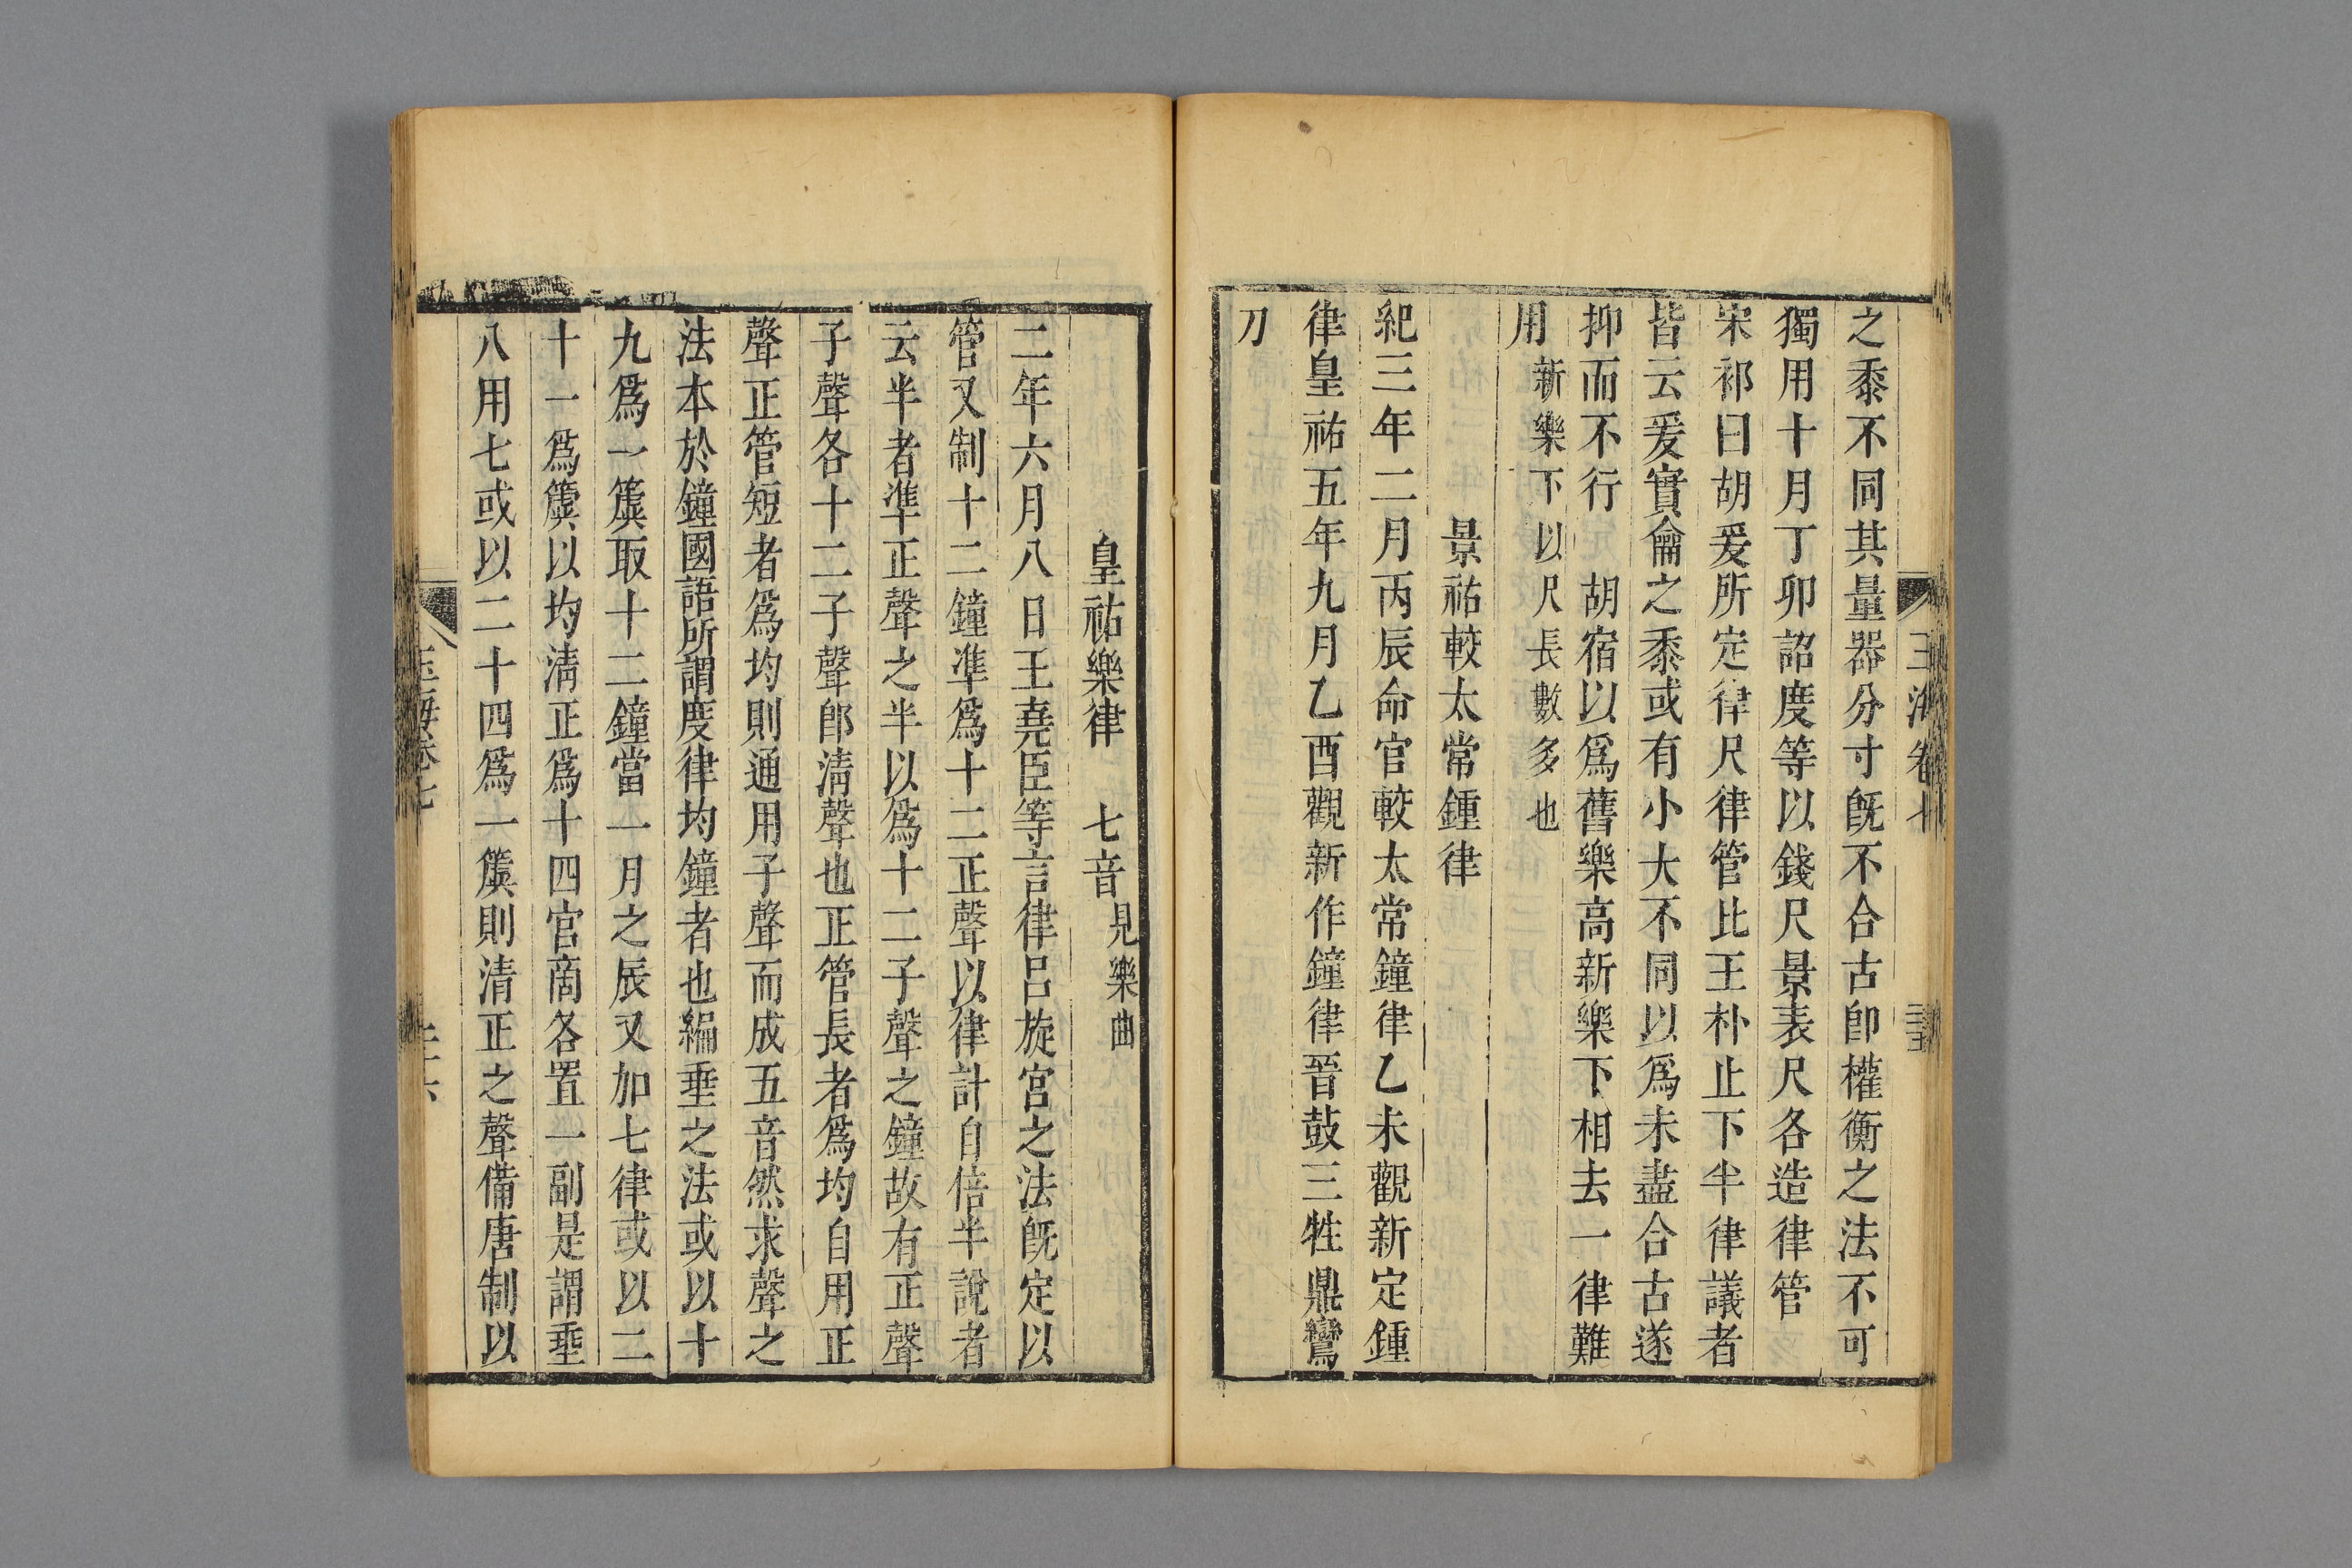 之黍不同其量器分寸旣不合古卽權衡之法不可
獨用十月丁卯詔度等以錢尺景表尺各造律管
宋祁曰胡爰所定律尺律管比王朴止下半律議者
皆云爰實龠之黍或有小大不同以爲未盡合古遂
抑而不行 胡宿以爲舊樂高新樂下相去一律難
用 新樂下以尺長數多也
景祐較太常鍾律
紀三年二月丙辰命官較太常鐘律乙未觀新定鍾
律皇祐五年九月乙酉觀新作鐘律晉鼓三牲鼎鸞
刀
玉海卷七
皇祐樂律 七音 見樂曲
二年六月八日王堯臣等言律呂旋宮之法旣定以
管又制十二鐘準爲十二正聲以律計自倍半說者
云半者準正聲之半以爲十二子聲之鐘故有正聲
子聲各十二子聲卽淸聲也正管長者爲均自用正
聲正管短者爲均則通用子聲而成五音然求聲之
法本於鐘國語所謂度律均鐘者也編垂之法或以十
九爲一簴取十二鐘當一月之辰又加七律或以二
十一爲簴以均淸正爲十四官商各置一副是謂垂
八用七或以二十四爲一簴則清正之聲備唐制以
玉海卷七